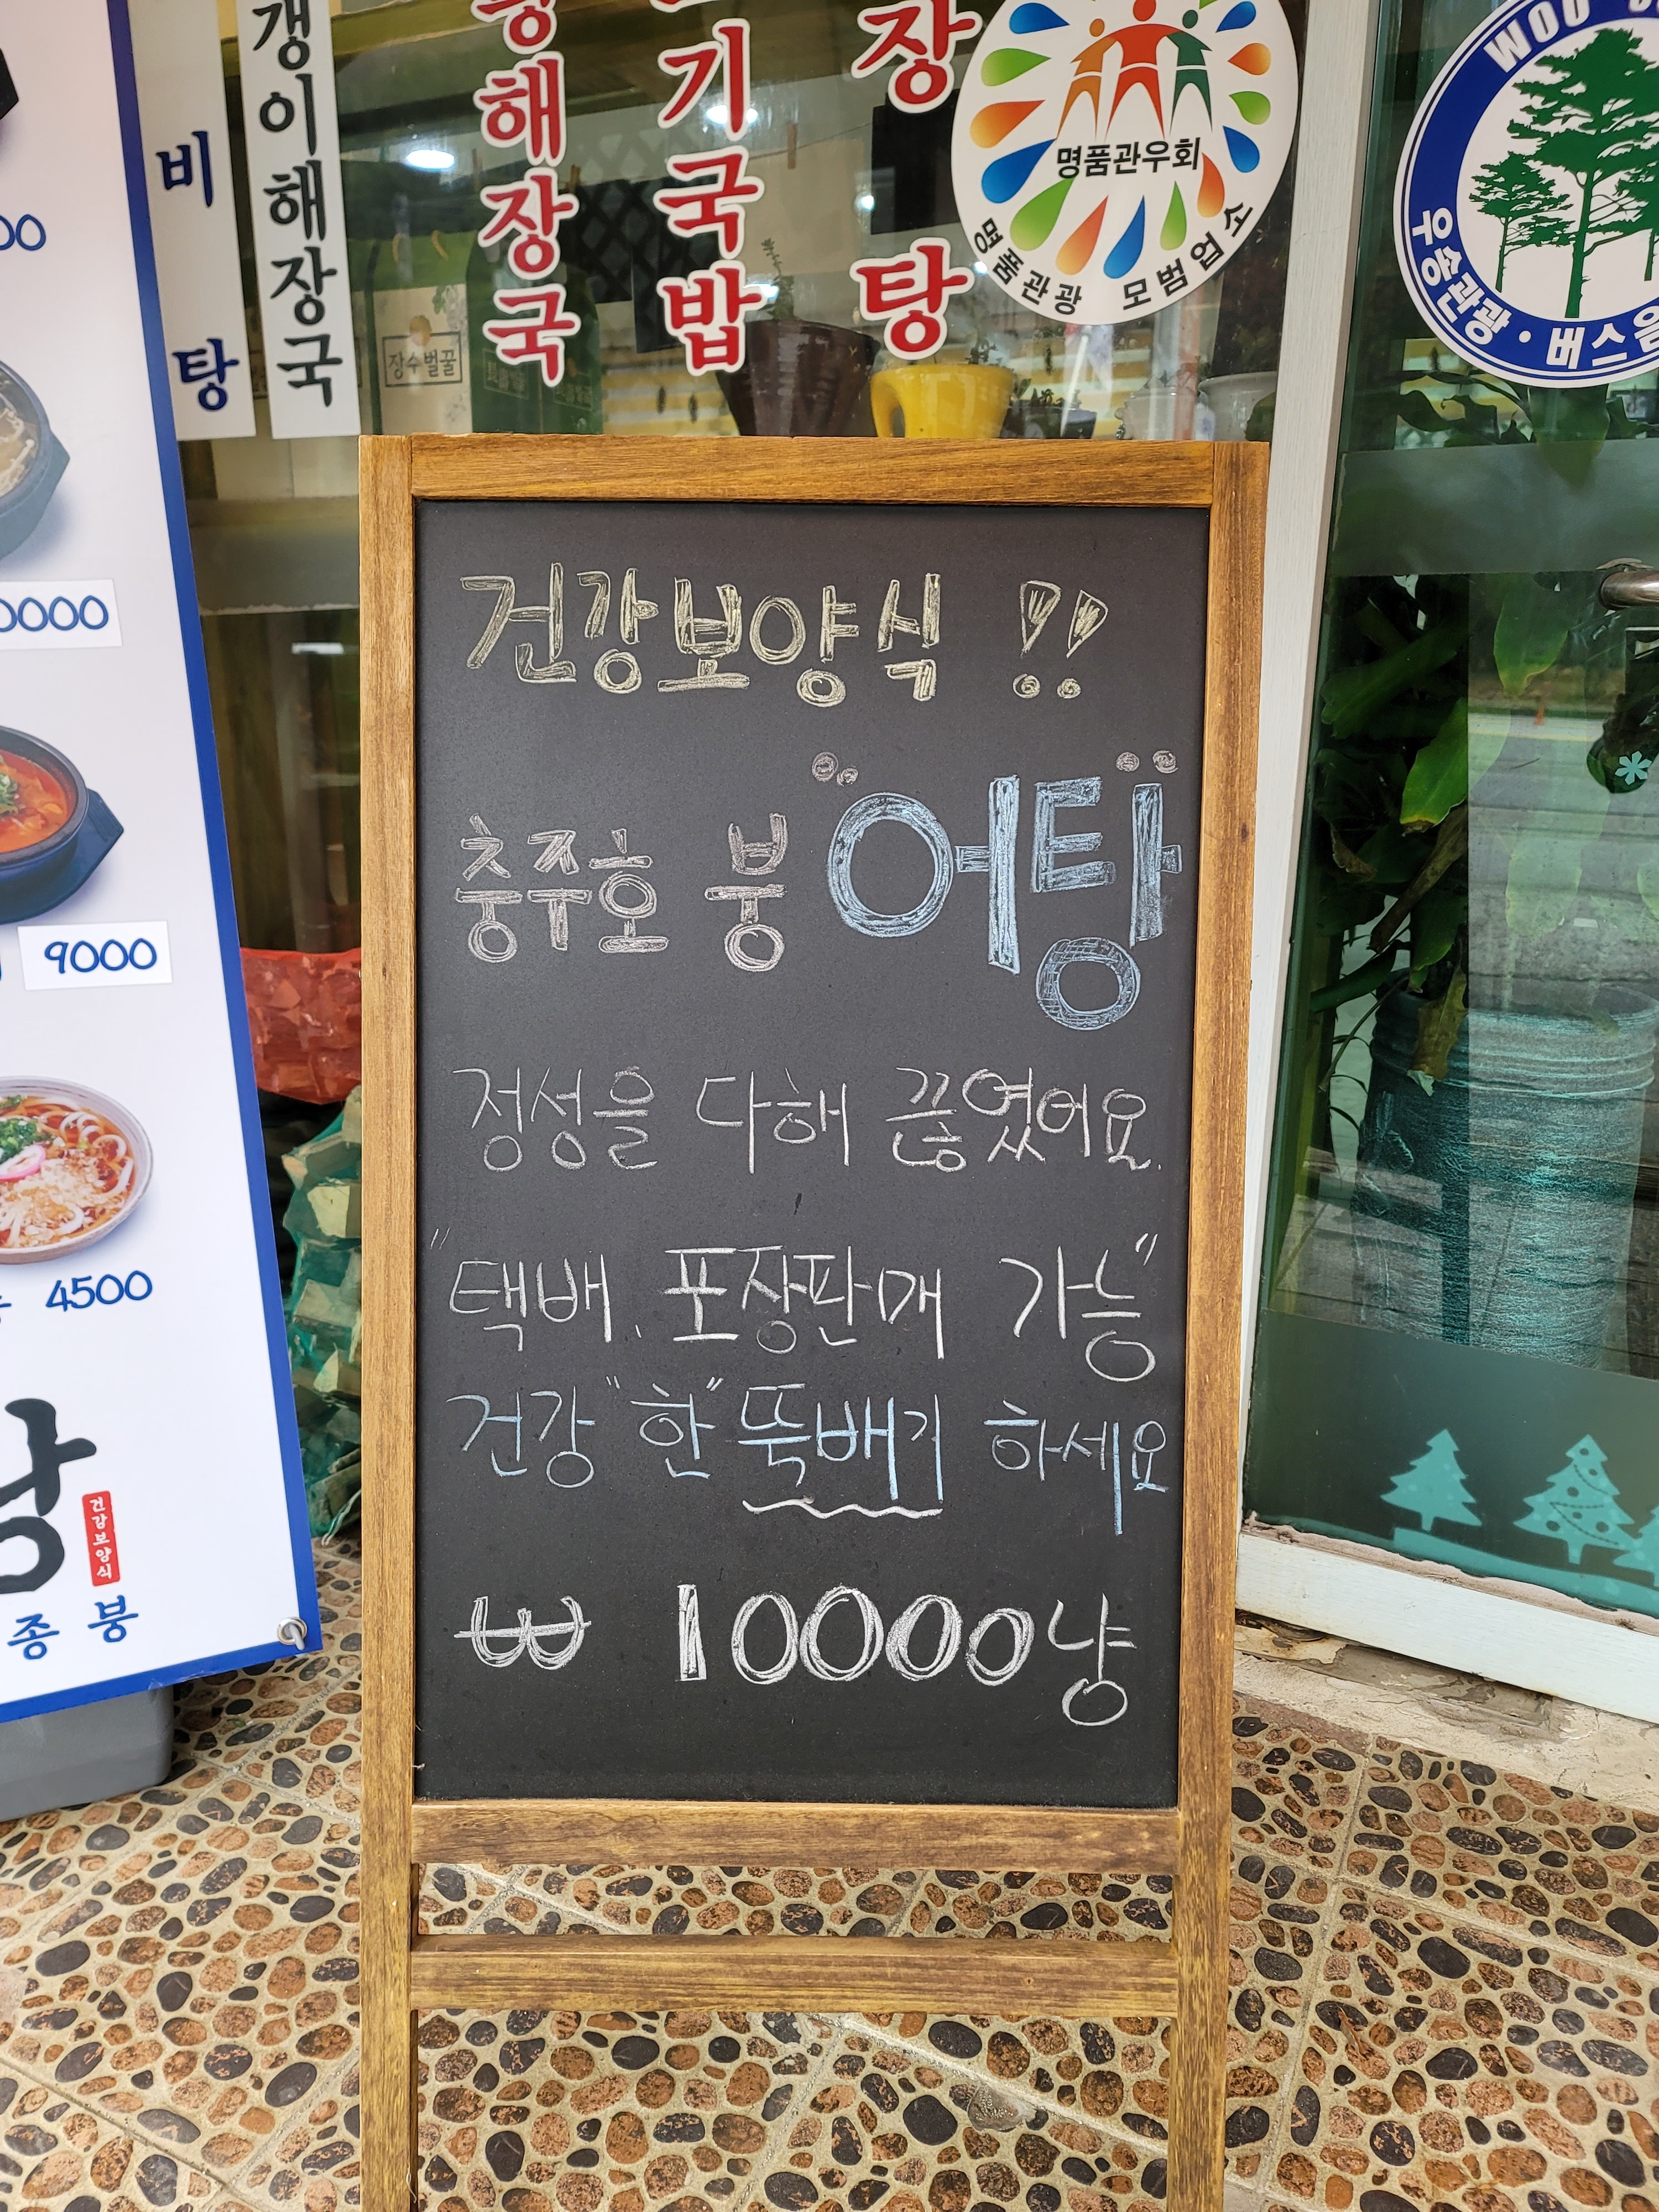 비탕
갱이해장국
해장국
기국밥
장탕
명품관우회
명품관광 모범업소
WOO
우송관광 · 버스
장수벌꿀
00
0000
9000
4500
건강보양식
종 붕
건강보양식 !!
충주호 붕 "어탕"
정성을 다해 끓였어요.
"택배, 포장판매 가능"
건강 "한" 뚝배기 하세요
₩ 10000냥